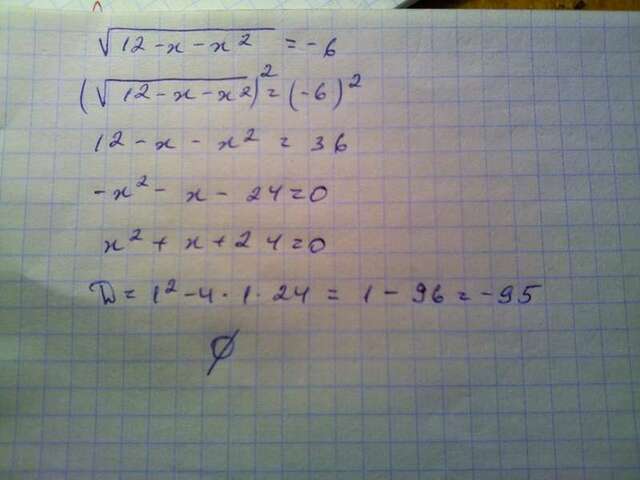 √(12 - x - x²) = -6
(√(12 - x - x2))² = (-6)²
12 - x - x² = 36
-x² - x - 24 = 0
x² + x + 24 = 0
D = 1² - 4 · 1 · 24 = 1 - 96 = -95
∅